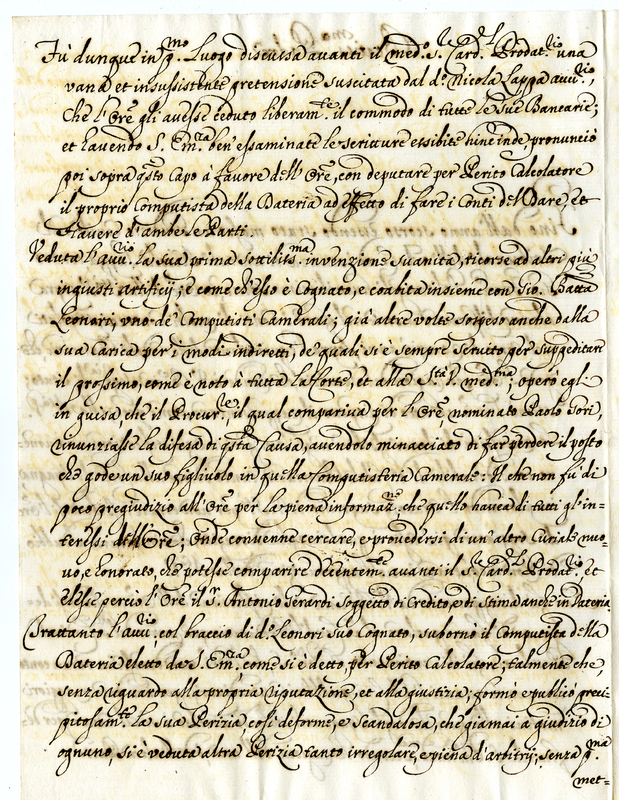 Fù dunque in p.mo Luogo discussa avanti il med.o S.re Card.l Prodat.rio una
vana et insussistente pretensione suscitata dal d.o Nicola Zappa avv.rio,
che l'Ore gli avesse ceduto liberam.te il commodo di tutte le sue Bancarie;
et havendo S. Em.za ben'essaminate le scritture essibite hinc inde, pronunciò
poi sopra q̃sto Capo à favore dell'Ore, con deputare per Perito Calcolatore
il proprio Computista della Dateria ad effetto di fare i Conti del Dare, et
Havere d'ambe le Parti.
Veduta l'avv.rio la sua prima sottiliss.ma invenzione suanita, ricorse ad altri più
ingiusti artificij; e come ch'esso è Cognato, e coabita insieme con Gio. Batta
Leonori, uno de' Computisti Camerali; già altre volte sospeso anche dalla
sua Carica per i modi indiretti, de quali si è sempre servito per suppeditare
il prossimo, come è noto à tutta la Corte, et alla S.tà V. med.ma; operò egli
in guisa, che il Procur.re, il qual compariva per l'Ore, nominato Paolo Fori,
rinunziasse la difesa di q̃sta Causa, avendolo minacciato di far perdere il posto
che gode un suo figliuolo in quella Computisteria Camerale: Il che non fù di
poco pregiudizio all'Ore per la piena informaz.ne, che quello havea di tutti gl'in=
teressi dell'Ore; Onde convenne cercare, e provedersi di un'altro Curiale nuo=
vo, e honorato, che potesse comparire decentem.te avanti il S.re Card.l Prodat.rio et
elesse perciò l'Ore il S.r Antonio Gerardi soggetto di Credito, e di Stima anche in Dateria
Trattanto l'avv.rio, col braccio di d.o Leonori suo Cognato, subornò il Computista della
Dateria eletto da S. Em.za, come si è detto, per Perito Calcolatore; talmente che,
senza riguardo alla propria riputazione, et alla giustizia; formò e publicò preci=
pitosam.te la sua Perizia così deforme, e scandalosa, che giamai a giudizio di
ognuno, si è veduta altra Perizia tanto irregolare, e piena d'arbitrij; senza p.ma
met=